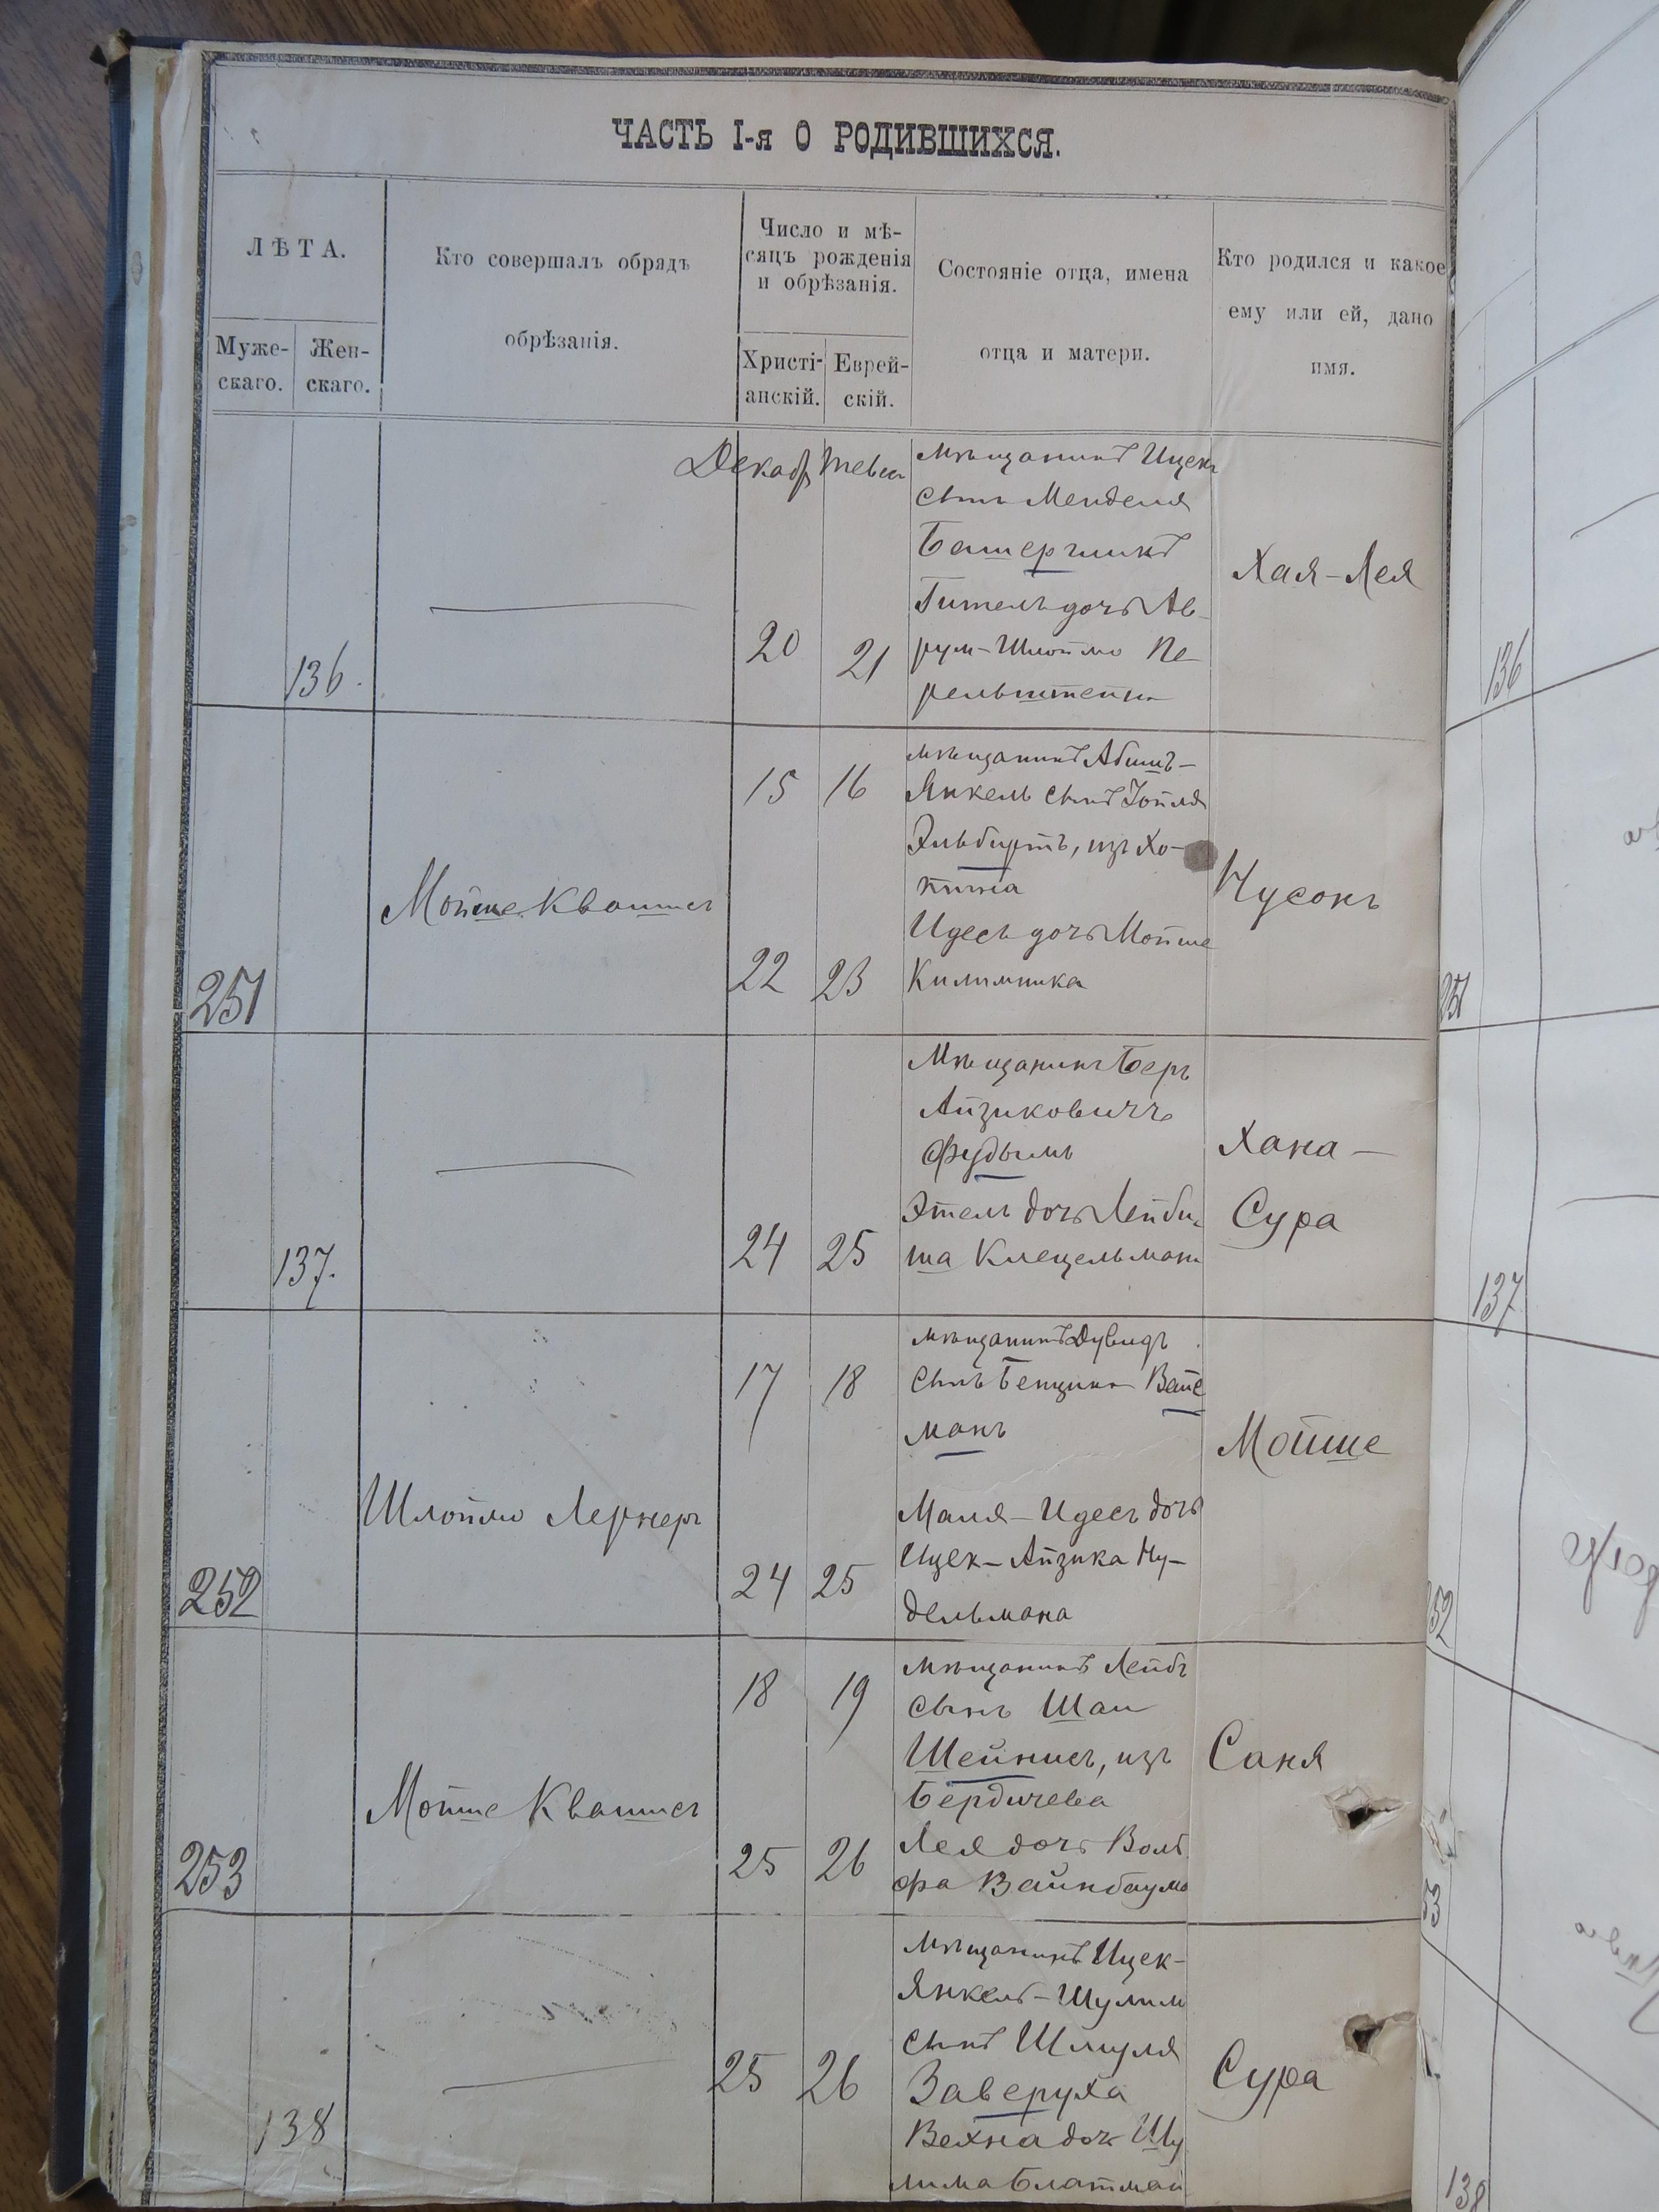 ЧАСТЬ I-я О РОДИВШИХСЯ.
ЛѢТА.
Муже-
скаго.
Жен-
скаго.
Кто совершалъ обрядъ
обрѣзанія.
Число и мѣ-
сяцъ рожденія
и обрѣзанія.
Христі-
анскій.
Еврей-
скій.
Состояніе отца, имена
отца и матери.
Кто родился и какое
ему или ей, дано
имя.
136.
Декабр
Тевеса
20
21
Мѣщанинъ Ицекъ
сынъ Менделя
Гительдочь Ав-
рум-Шлоймо Пе-
рельштейнъ
Хая-Лея
136
251
Мойше Квашисъ
15
16
22
23
мѣщанинъ Абишъ-
Янкель сынъ Іойля
Эльбиртъ, изъ Хо-
тина
Идесь дочь Мойше
Килимника
Нусонъ
251
137.
24
25
Мѣщанинъ Беръ
Айзиковичъ
Фудымъ
Этель дочь Лейби-
ша Клецельманъ
Хана-
Сура
137
252
Шлоймо Лернеръ
17
18
24
25
мѣщанинъ Дувидъ
сынъ Бенциона Вайс
манъ
Маля-Идесъ дочь
Ицек-Айзика Ну-
дельмана
Мойше
252
253
Мойше Квашисъ
18
19
25
26
мѣщанинъ Лейбъ
сынъ Шаи
Шейнисъ, изъ
Бердичева
Лея дочь Воль
фа Вайнбаума
Саня
53
138
25
26
мѣщанинъ Ицек-
Янкель-Шулим
сынъ Шмуля
Заверуха
Вехна дочь Шу
лима Блатман
Сура
138